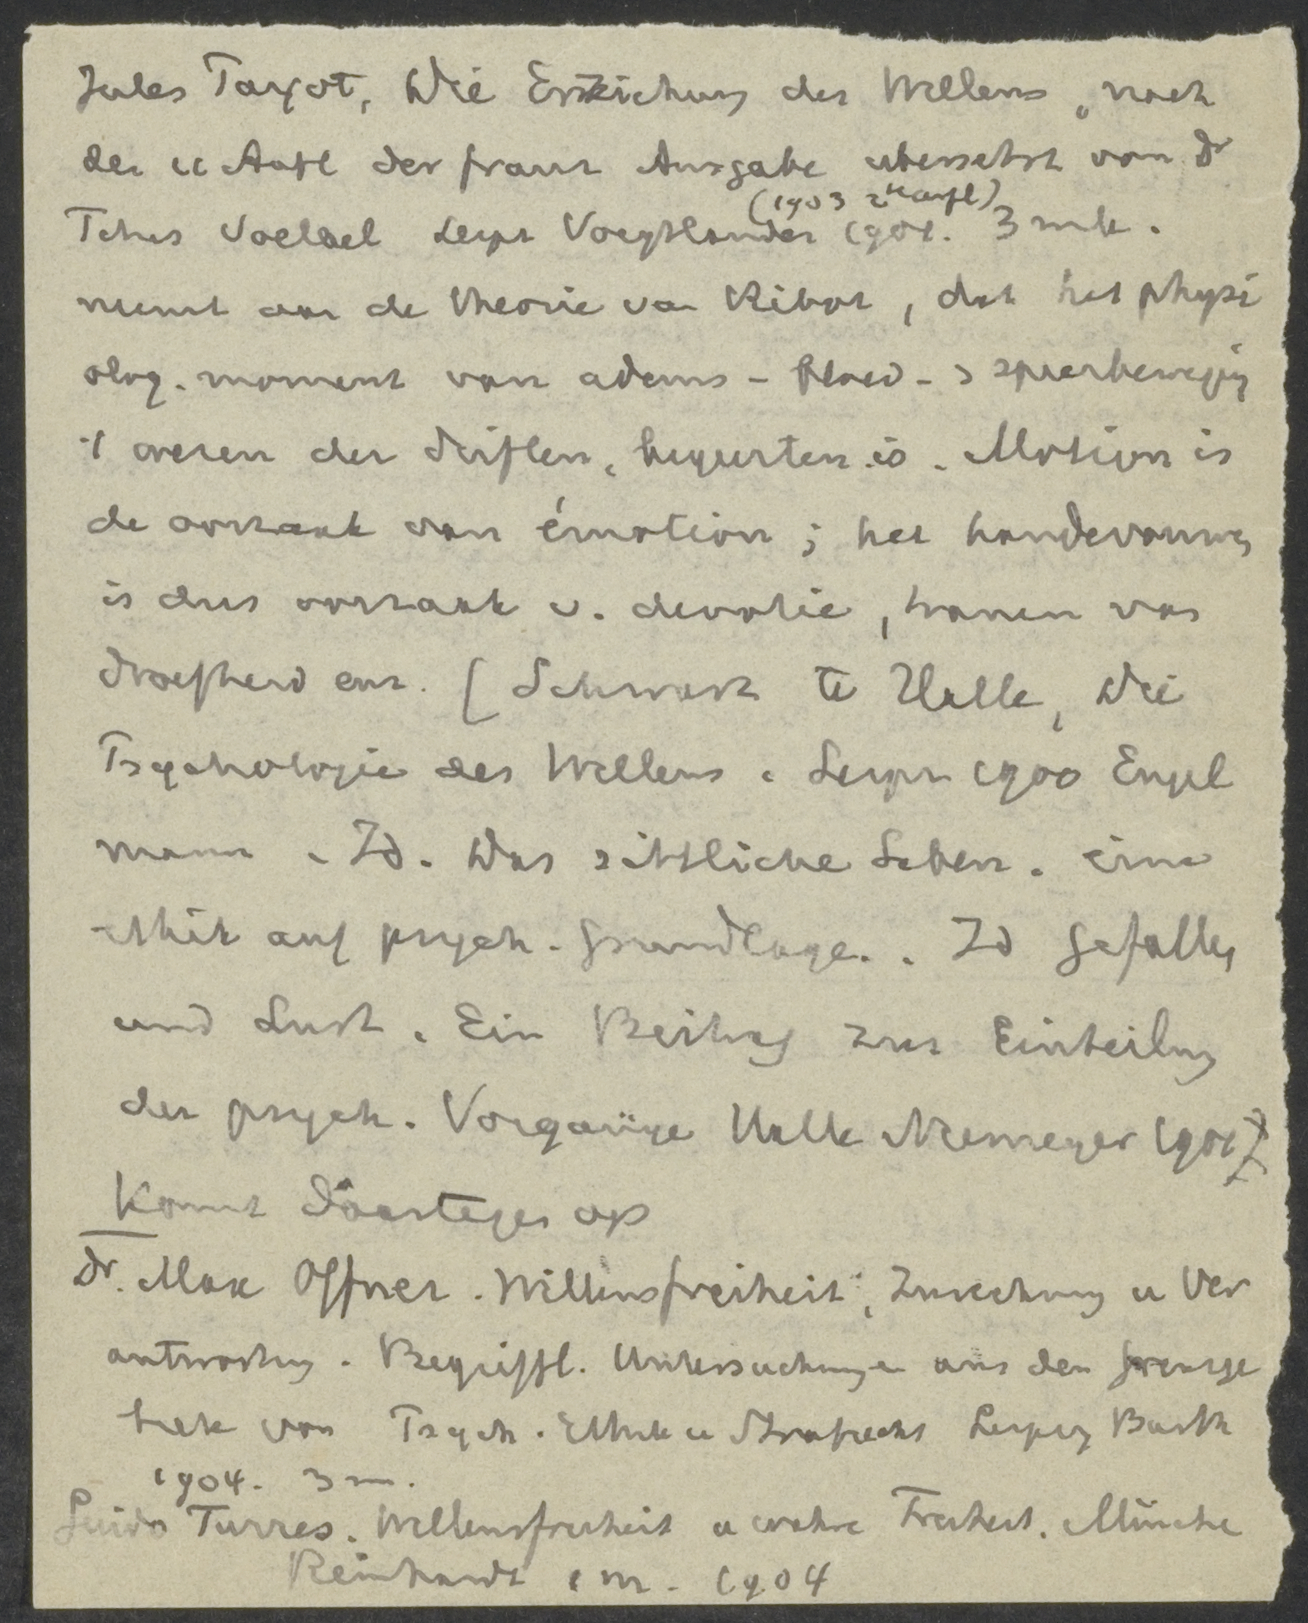 Jules Payot, Die Erziehung des Willens, nach
der 11 Aufl der franz Ausgabe übersetzt von Dr
(1903 2te aufl)
Titus Voelkel Leipz Voigtlander 1901. 3 mk.
neemt aan de theorie van Ribot, dat het physi
olog. moment van adems- bloed- spierbeweging
't wezen der driften, begeerten is. Motion is
de oorzaak van émotion; het handevouwen
is dus oorzaak v. devotie, tranen van
droefheid enz. [Schwarz te Halle, Die
Psychologie des Willens. Leipz 1900 Engel
mann. Id. Das sittliche Leben. eine
Ethik auf psych. Grundlage.. Id Gefallen
und Lust. Ein Beitrag zur Einteilung
der psych. Vorgänge Halle Niemeyer 1901]
Komt daartegen op
Dr. Max Offner. Willensfreiheit, Zurechnung u Ver
antwortung. Begriffl. Untersuchungen aus dem Grenzge
biete von Psych. Ethik u Strafrecht Leipzig Barth
1904. 3 m.
Guido Turries. Willensfreiheit u wahre Freiheit. Münche
Reinhardt 1 m. 1904